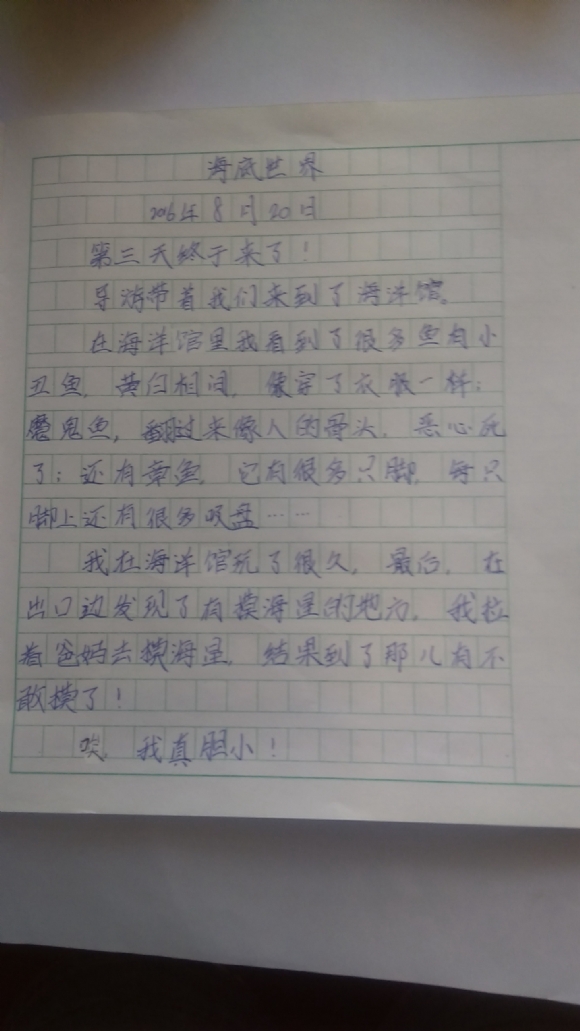 海底世界
2016年8月20日
第三天终于来了！
导游带着我们来到了海洋馆。
在海洋馆里我看到了很多鱼有小
丑鱼，黄白相间，像穿了衣裳一样；
魔鬼鱼，翻过来像人的骨头，恶心死
了；还有章鱼，它有很多只脚，每只
脚上还有很多吸盘……
我在海洋馆玩了很久，最后，在
出口边发现了有摸海星的地方，我拉
着爸妈去摸海星，结果到了那儿有不
敢摸了！
唉，我真胆小！